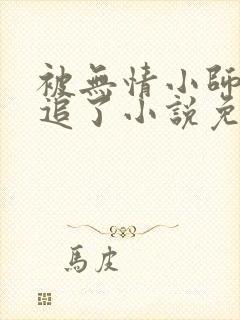 被無情小師
追了小說免
馬皮